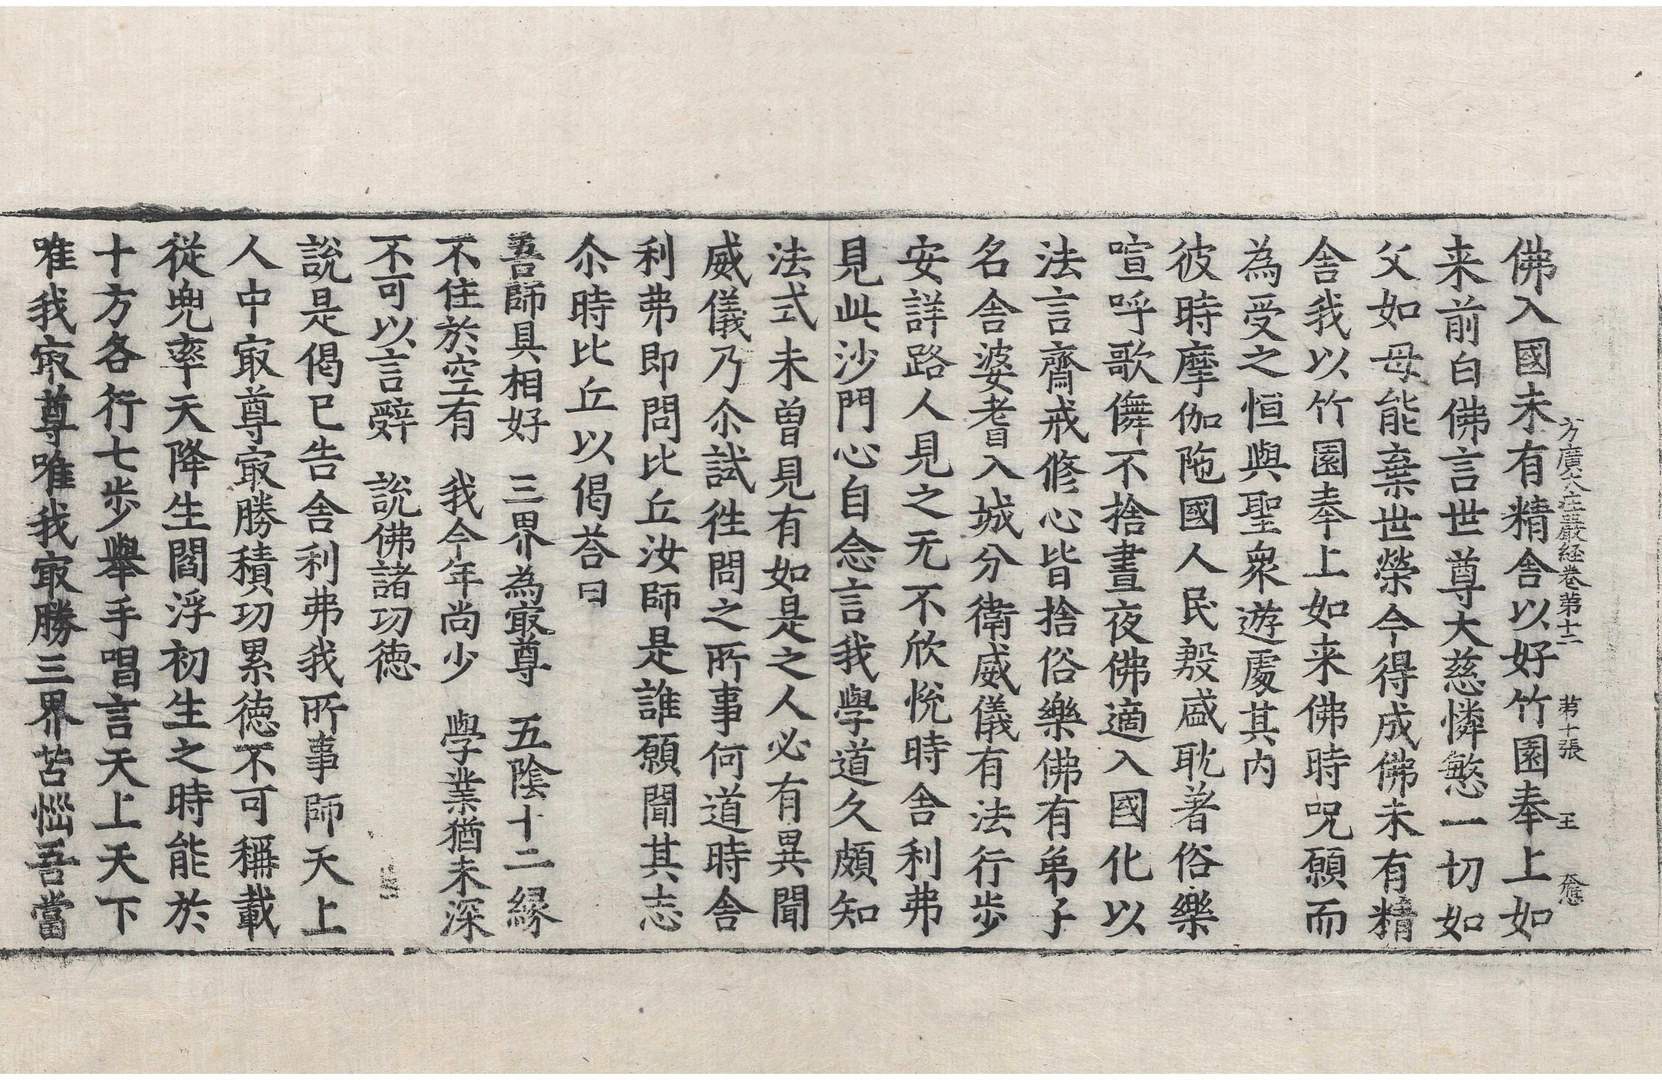 方廣大莊嚴経卷第十二 第十張 王
佛入國未有精舍以好竹園奉上如
来前白佛言世尊大慈憐慜一切如
父如母能棄世榮今得成佛未有精
舍我以竹園奉上如来佛時呪願而
為受之恒與聖衆遊處其内
彼時摩伽陁國人民殷盛耽著俗樂
喧呼歌儛不捨晝夜佛適入國化以
法言齋戒修心皆捨俗樂佛有弟子
名舍婆耆入城分衛威儀有法行步
安詳路人見之无不欣悅時舍利弗
見此沙門心自念言我學道久頗知
法式未曽見有如是之人必有異聞
威儀乃尒試徃問之所事何道時舍
利弗即問比丘汝師是誰願聞其志
尒時比丘以偈荅曰
吾師具相好 三界為㝡尊 五陰十二緣
不住於空有 我今年尚少 學業猶未深
不可以言辭 說佛諸功徳
說是偈已告舍利弗我所事師天上
人中㝡尊㝡勝積功累徳不可稱載
從兜率天降生閻浮初生之時能於
十方各行七步舉手唱言天上天下
唯我㝡尊唯我㝡勝三界苦惱吾當